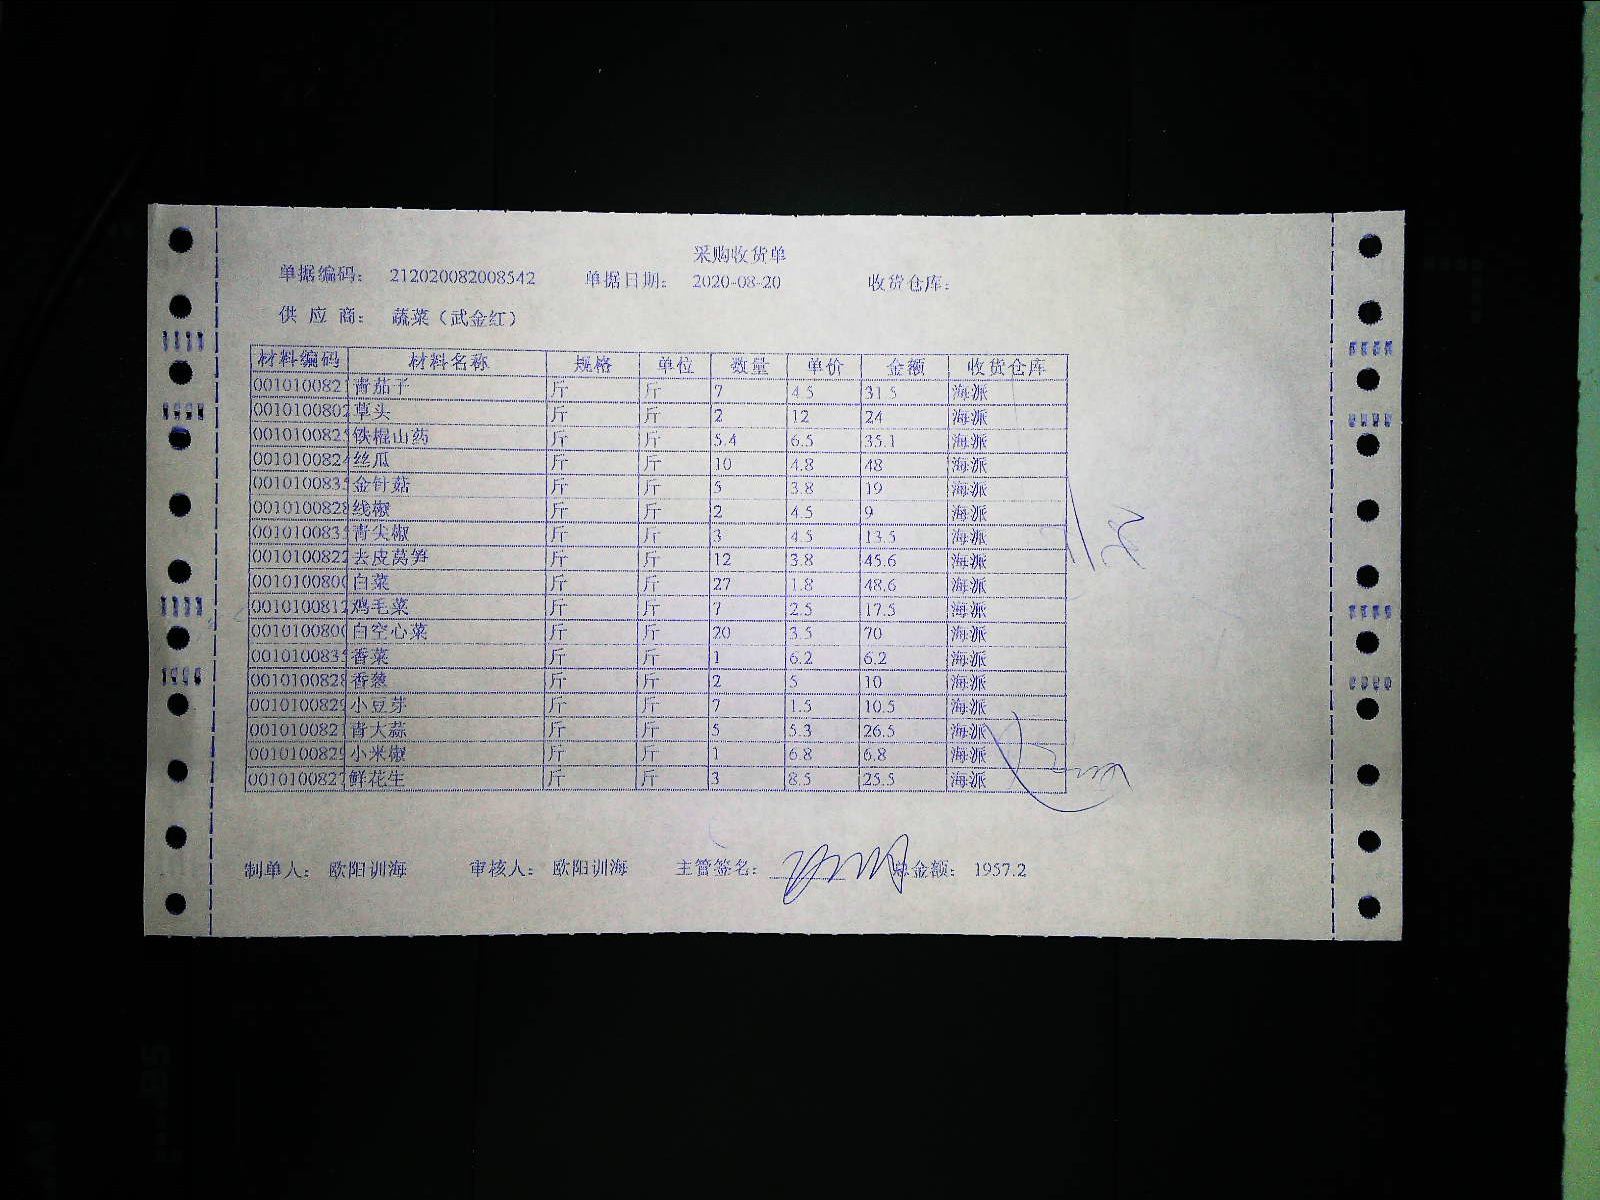 采购收货单
单据编码： 212020082008542 单据日期： 2020-08-20 收货仓库：
供 应 商： 蔬菜（武金红）
材料编码 材料名称 规格 单位 数量 单价 金额 收货仓库
001010082 青茄子 斤 斤 7 4.5 31.5 海派
001010080 草头 斤 斤 2 12 24 海派
001010082 铁棍山药 斤 斤 5.4 6.5 35.1 海派
001010082 丝瓜 斤 斤 10 4.8 48 海派
001010083 金针菇 斤 斤 5 3.8 19 海派
001010082 线椒 斤 斤 2 4.5 9 海派
001010083 青尖椒 斤 斤 3 4.5 13.5 海派
001010082 去皮莴笋 斤 斤 12 3.8 45.6 海派
001010080 白菜 斤 斤 27 1.8 48.6 海派
001010081 鸡毛菜 斤 斤 7 2.5 17.5 海派
001010080 白空心菜 斤 斤 20 3.5 70 海派
001010083 香菜 斤 斤 1 6.2 6.2 海派
001010082 香葱 斤 斤 2 5 10 海派
001010082 小豆芽 斤 斤 7 1.5 10.5 海派
001010082 青大蒜 斤 斤 5 5.3 26.5 海派
001010082 小米椒 斤 斤 1 6.8 6.8 海派
001010082 鲜花生 斤 斤 3 8.5 25.5 海派
制单人： 欧阳训海 审核人： 欧阳训海 主管签名： 总金额： 1957.2